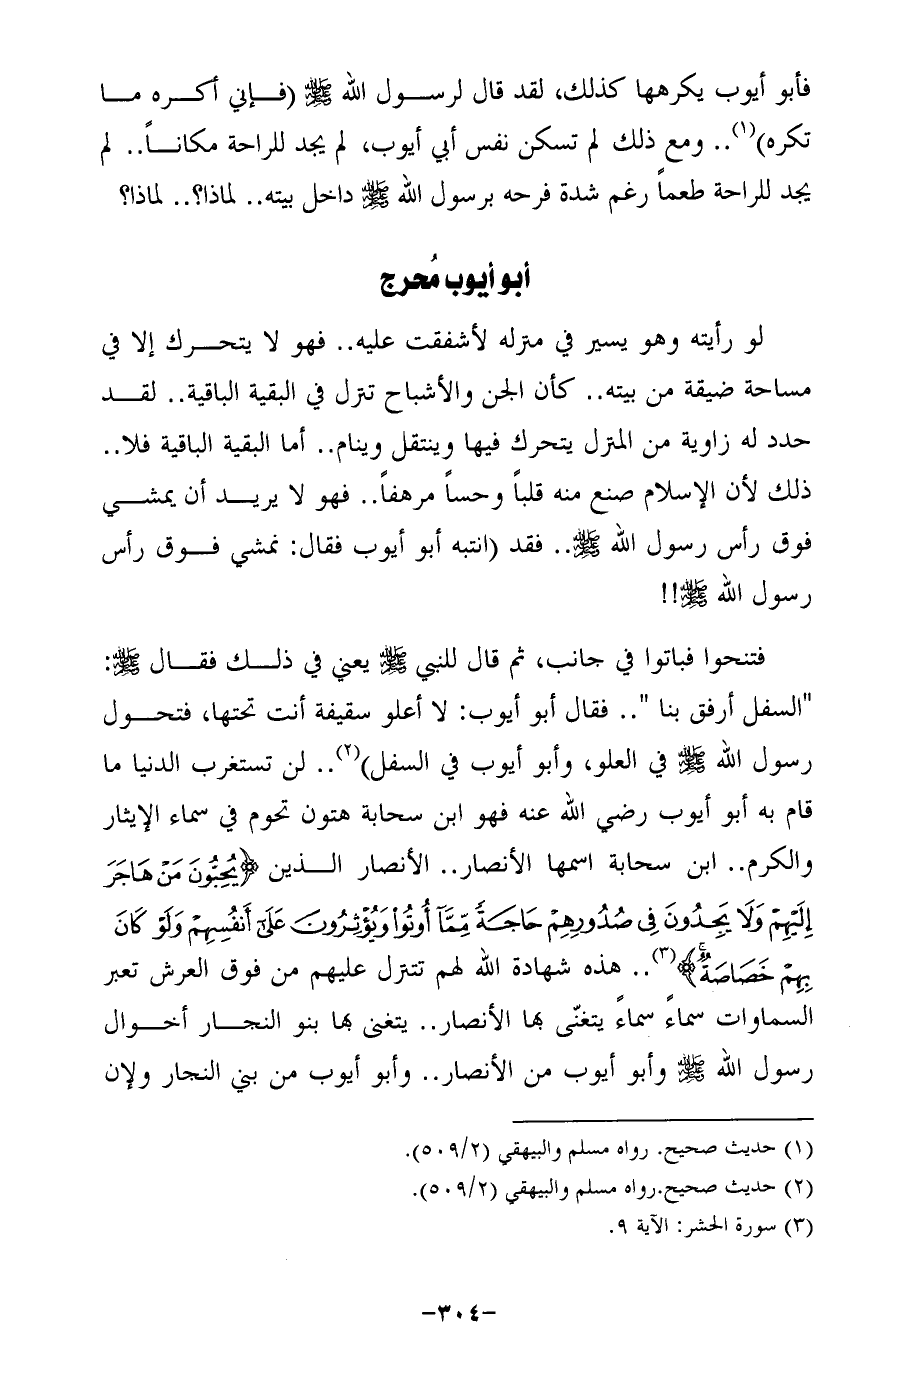 فأبو أيوب يكرهها كذلك، لقد قال لرسول الله ﷺ (فإني أكره ما
تكره)(١).. ومع ذلك لم تسكن نفس أبي أيوب، لم يجد للراحة مكاناً.. لم
يجد للراحة طعماً رغم شدة فرحه برسول الله ﷺ داخل بيته.. لماذا؟.. لماذا؟
أبو أيوب مُحرج
لو رأيته وهو يسير في منزله لأشفقت عليه.. فهو لا يتحرك إلا في
مساحة ضيقة من بيته.. كأن الجن والأشباح تنزل في البقية الباقية.. لقد
حدد له زاوية من المنزل يتحرك فيها وينتقل وينام.. أما البقية الباقية فلا..
ذلك لأن الإسلام صنع منه قلباً وحساً مرهفاً.. فهو لا يريد أن يمشي
فوق رأس رسول الله ﷺ.. فقد (انتبه أبو أيوب فقال: نمشي فوق رأس
رسول الله ﷺ!!
فتنحوا فباتوا في جانب، ثم قال للنبي ﷺ يعني في ذلك فقال ﷺ:
"السفل أرفق بنا ".. فقال أبو أيوب: لا أعلو سقيفة أنت تحتها، فتحول
رسول الله ﷺ في العلو، وأبو أيوب في السفل)(٢).. لن تستغرب الدنيا ما
قام به أبو أيوب رضي الله عنه فهو ابن سحابة هتون تحوم في سماء الإيثار
والكرم.. ابن سحابة اسمها الأنصار.. الأنصار الذين ﴿يُحِبُّونَ مَنْ هَاجَرَ
إِلَيْهِمْ وَلَا يَجِدُونَ فِي صُدُورِهِمْ حَاجَةً مِّمَّآ أُوتُواْ وَيُؤْثِرُونَ عَلَىٰٓ أَنفُسِهِمْ وَلَوْ كَانَ
بِهِمْ خَصَاصَةٌۚ﴾(٣).. هذه شهادة الله لهم تتنزل عليهم من فوق العرش تعبر
السماوات سماءً سماءً يتغنّى بها الأنصار.. يتغنى بها بنو النجار أخوال
رسول الله ﷺ وأبو أيوب من الأنصار.. وأبو أيوب من بني النجار ولإن
(١) حديث صحيح. رواه مسلم والبيهقي (٥٠٩/٢).
(٢) حديث صحيح.رواه مسلم والبيهقي (٥٠٩/٢).
(٣) سورة الحشر: الآية ٩.
-٣٠٤-